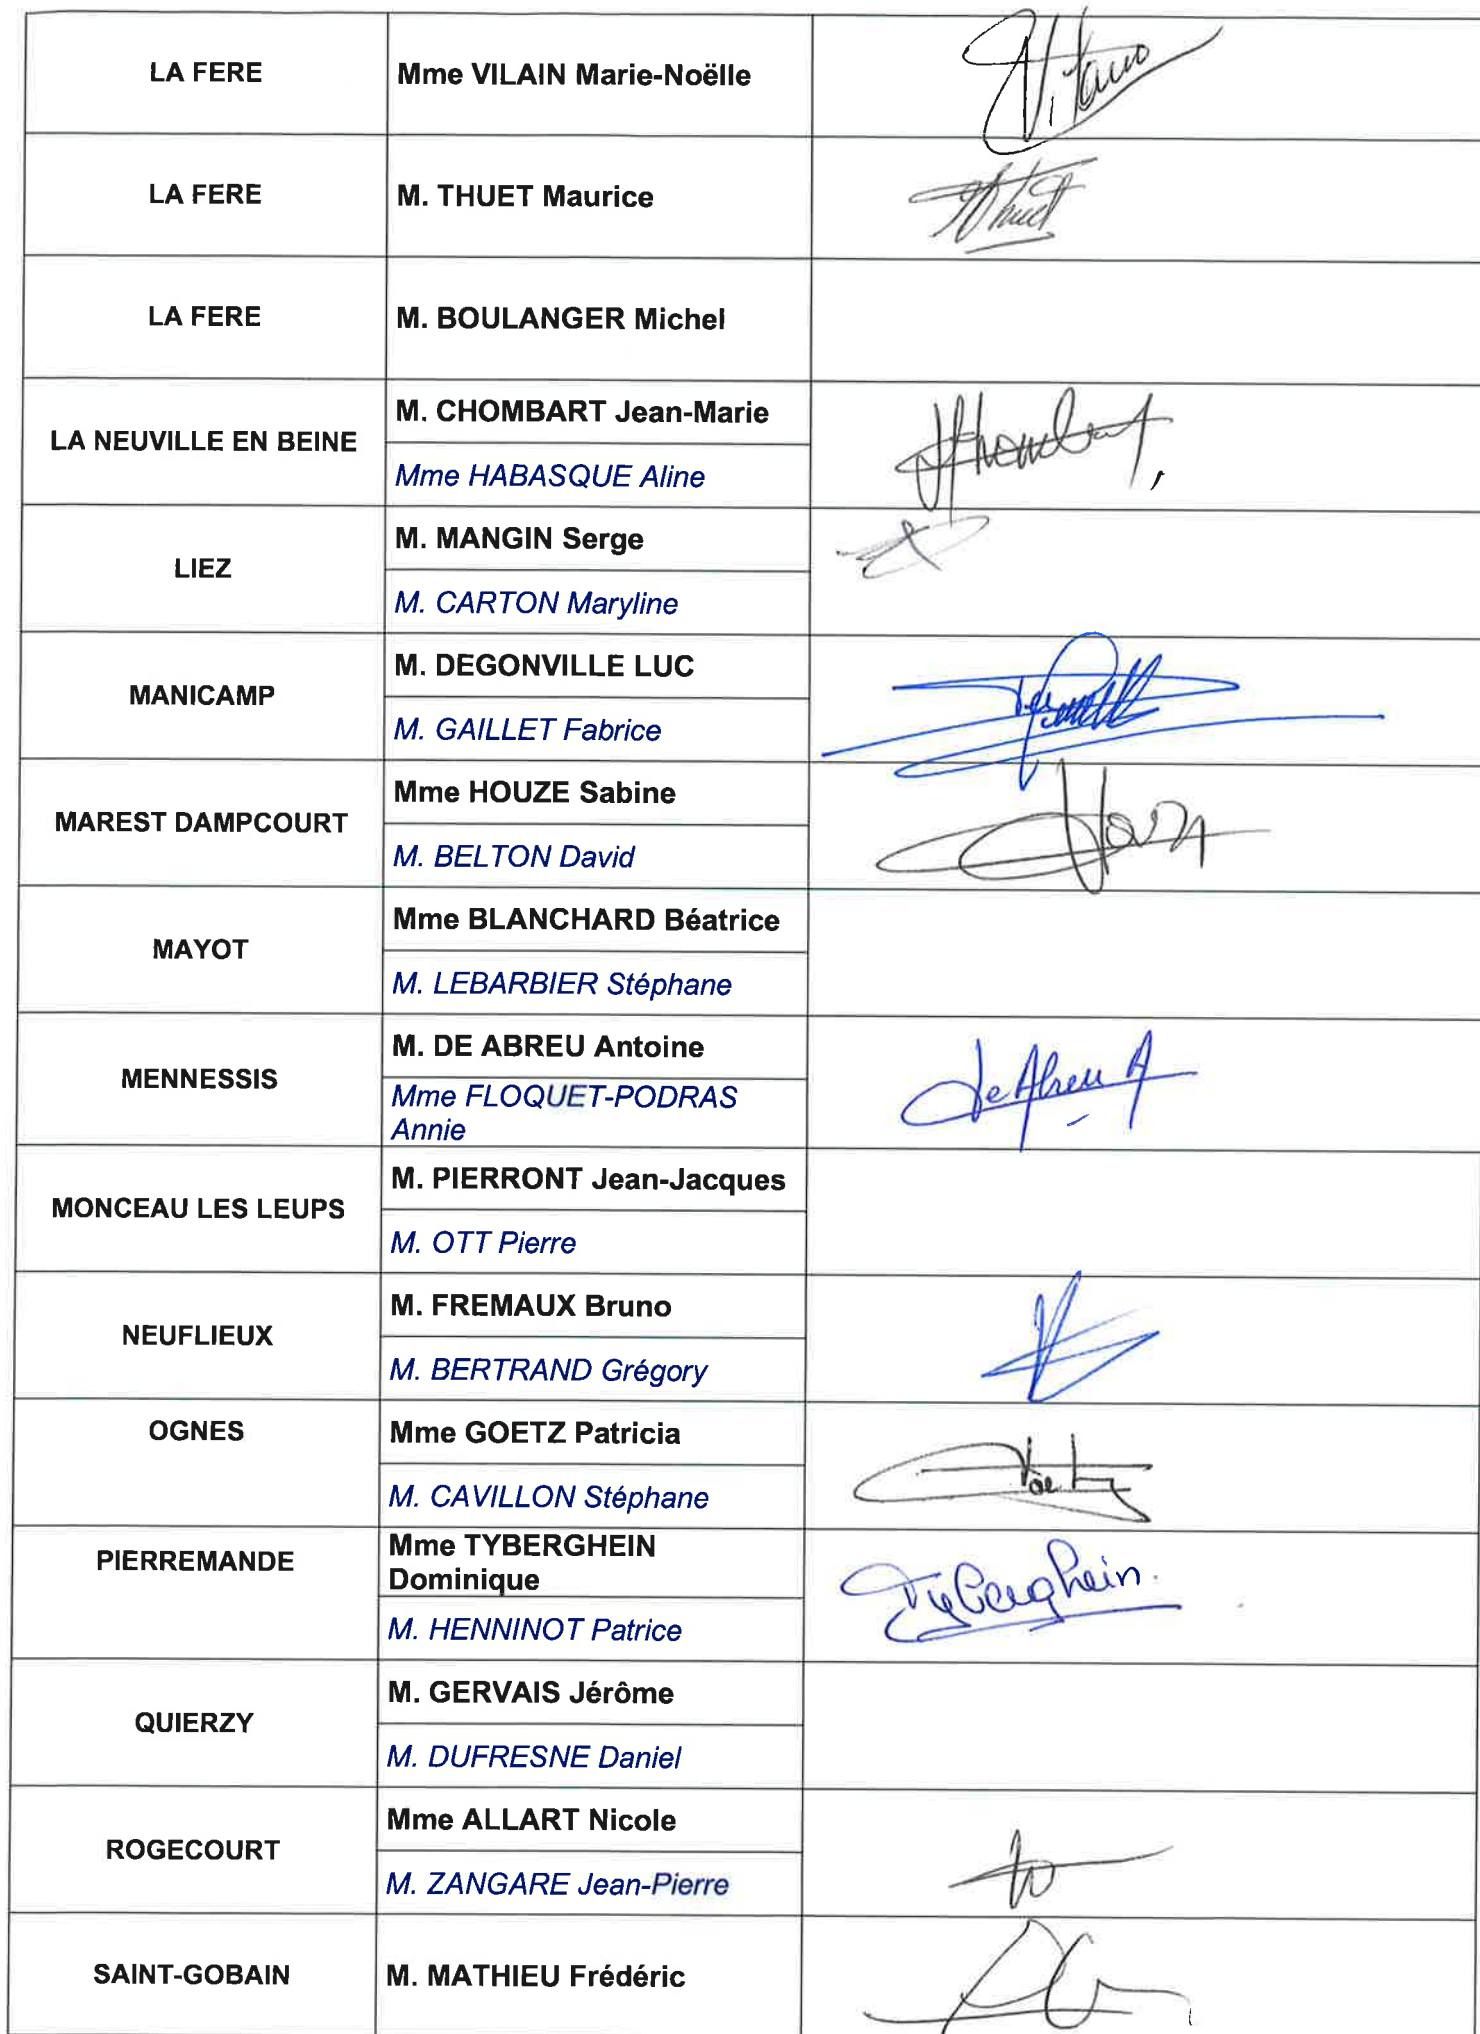 LA FERE
Mme VILAIN Marie-Noëlle
Vilain
LA FERE
M. THUET Maurice
Thuet
LA FERE
M. BOULANGER Michel
LA NEUVILLE EN BEINE
M. CHOMBART Jean-Marie
Mme HABASQUE Aline
Chombart
LIEZ
M. MANGIN Serge
M. CARTON Maryline
MANICAMP
M. DEGONVILLE LUC
M. GAILLET Fabrice
MAREST DAMPCOURT
Mme HOUZE Sabine
M. BELTON David
MAYOT
Mme BLANCHARD Béatrice
M. LEBARBIER Stéphane
MENNESSIS
M. DE ABREU Antoine
Mme FLOQUET-PODRAS
Annie
De Abreu A
MONCEAU LES LEUPS
M. PIERRONT Jean-Jacques
M. OTT Pierre
NEUFLIEUX
M. FREMAUX Bruno
M. BERTRAND Grégory
OGNES
Mme GOETZ Patricia
M. CAVILLON Stéphane
Goetz
PIERREMANDE
Mme TYBERGHEIN
Dominique
M. HENNINOT Patrice
Tyberghein.
QUIERZY
M. GERVAIS Jérôme
M. DUFRESNE Daniel
ROGECOURT
Mme ALLART Nicole
M. ZANGARE Jean-Pierre
SAINT-GOBAIN
M. MATHIEU Frédéric